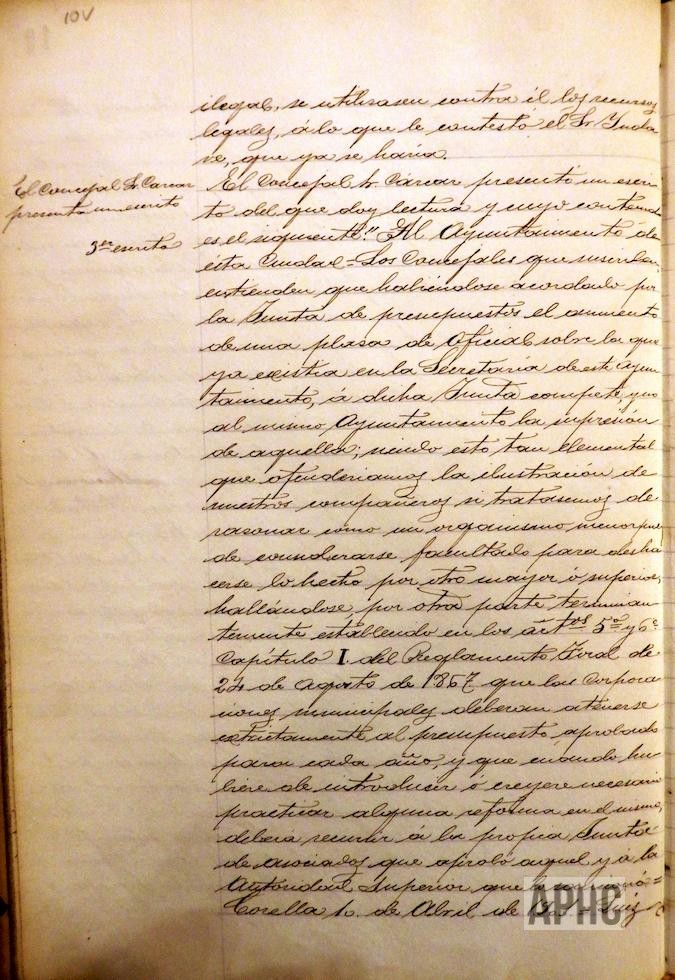 10V
ilegal, se utilizasen contra él los recursos
legales, á lo que le contestó el Sr. Inda
ve, que ya se haria.
El Concejal Sr. Carcar
presenta un escrito
3er escrito
El Concejal Sr. Cárcar presentó un escri
to del que doy lectura y cuyo contenido
es el siguiente." Al Ayuntamiento de
ésta Ciudad = Los Concejales que suscriben
entienden que habiéndose acordado por
la Junta de presupuestos el aumento
de una plasa de Oficial sobre la que
ya existia en la Secretaría de este Ayun
tamiento, á dicha Junta compete, y no
al mismo Ayuntamiento la supresión
de aquella; siendo esto tan elemental
que ofenderiamos la ilustración de
nuestros compañeros si tratasemos de
rasonar como un organismo menor pue
de considerarse facultado para desha
cerse lo hecho por otro mayor ó superior,
hallándose, por otra parte terminan
temente establecido en los artos 5º y 6º
Capítulo I. del Reglamento Foral de
24 de agosto de 1867 que las Corpora
ciones municipales deberan atenerse
extrictamente al presupuesto aprobado
para cada año, y que cuando hu
biere de introducir ó creyere necesario
practicar alguna reforma en el mismo,
deberá recurrir á la propia Junta
de asociados que aprobó aquel y á la
Autoridad Superior que le sancionó =
Corella 1o. de Abril de
APHC